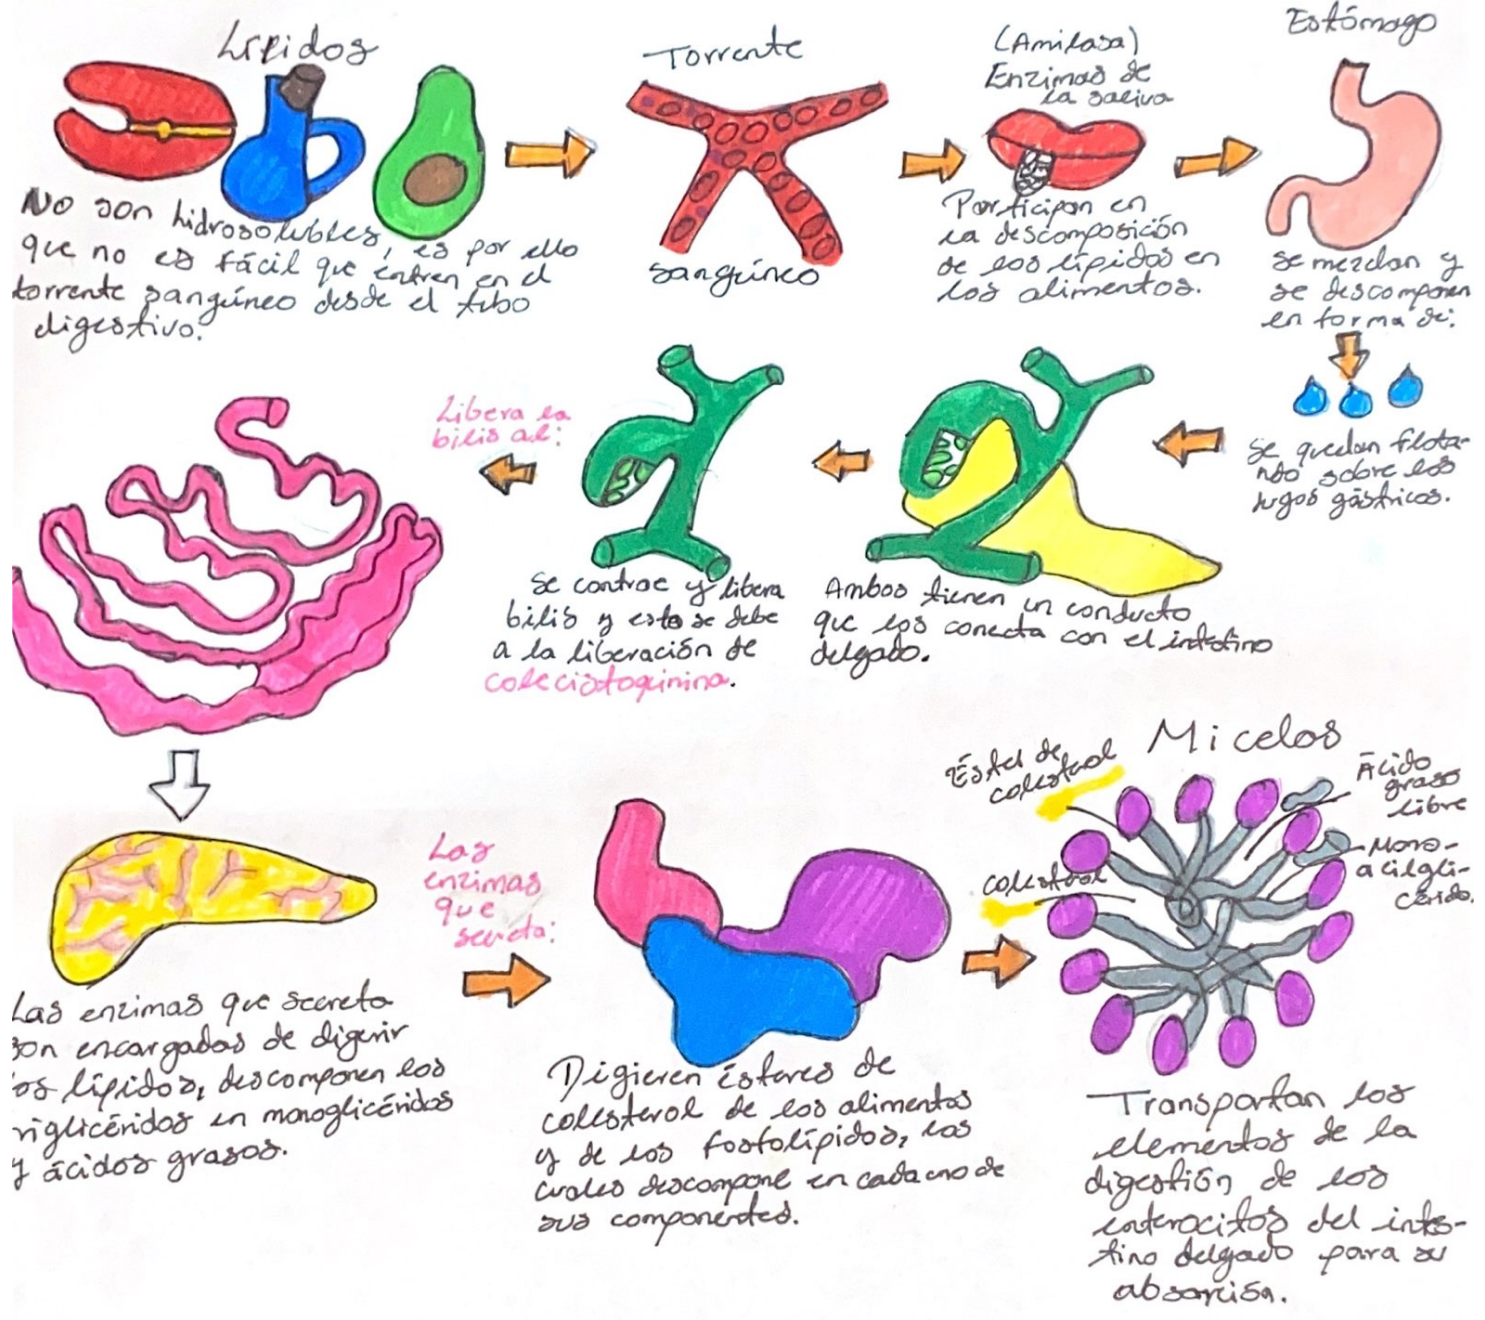 Lípidos
No son hidrosolubles, es por ello
que no es fácil que entren en el
torrente sanguíneo desde el tubo
digestivo.
Torrente
sanguíneo
(Amilasa)
Enzimas de
la saliva
Participan en
la descomposición
de los lípidos en
los alimentos.
Estómago
se mezclan y
se descomponen
en forma de:
se quedan flota-
ndo sobre los
jugos gástricos.
Ambos tienen un conducto
que los conecta con el intestino
delgado.
Se contrae y libera
bilis y esto se debe
a la liberación de
colecistoquinina.
Libera la
bilis al:
Las enzimas que secreta
son encargadas de digerir
os lípidos, descomponen los
riglicéridos en monoglicéridos
y ácidos grasos.
Las
enzimas
que
secreta:
Digieren ésteres de
colesterol de los alimentos
y de los fosfolípidos, las
cuales descompone en cada uno de
sus componentes.
Micelos
Éstel de
colesterol
colesterol
Ácido
graso
libre
Mono-
acilgli-
cérido.
Transportan los
elementos de la
digestión de los
enterocitos del intes-
tino delgado para su
absorción.